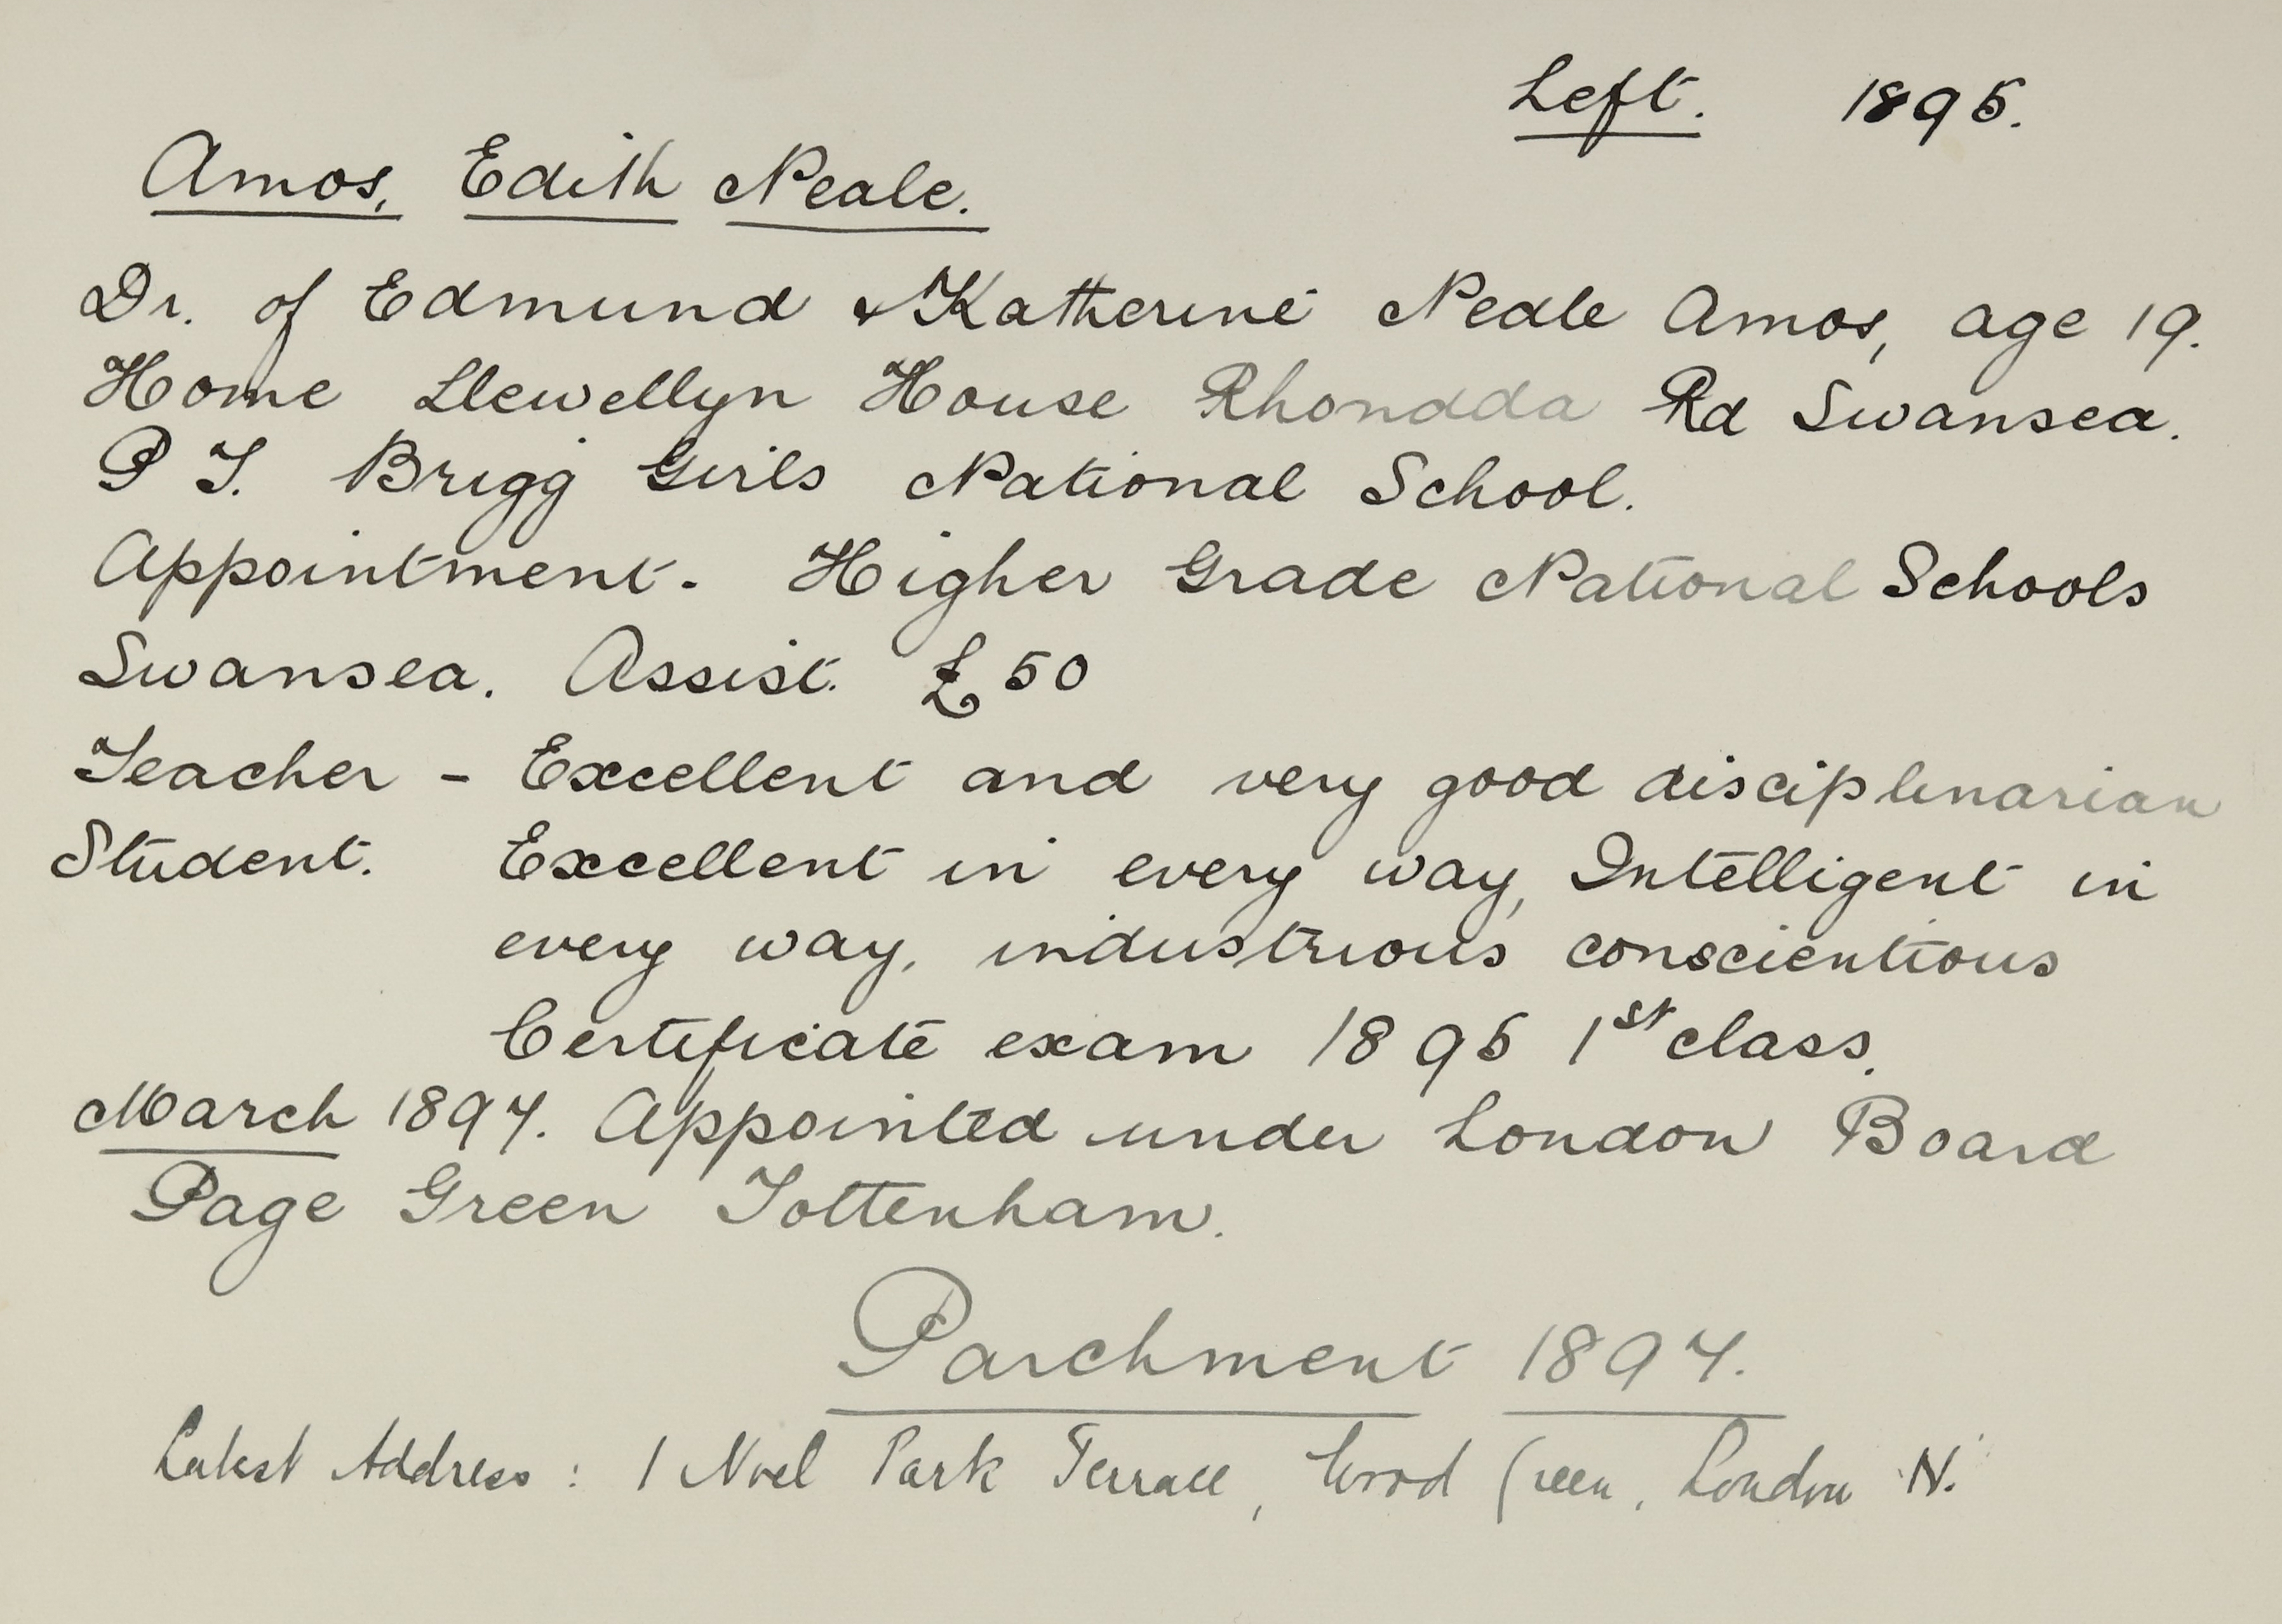 Left. 1895.
Amos, Edith Neale.
Dr. of Edmund & Katherine Neale Amos, age 19.
Home Llewellyn House Rhondda Rd Swansea.
P T. Brigg Girls National School.
Appointment. Higher Grade National Schools
Swansea. Assist. £50
Teacher - Excellent and very good disciplinarian
Student. Excellent in every way, Intelligent in
every way, industrious conscientious
Certificate exam 1895 1st class.
March 1897. Appointed under London Board
Page Green Tottenham.
Parchment 1897.
Latest Address : 1 Noel Park Terrace, Wood Green, London N.